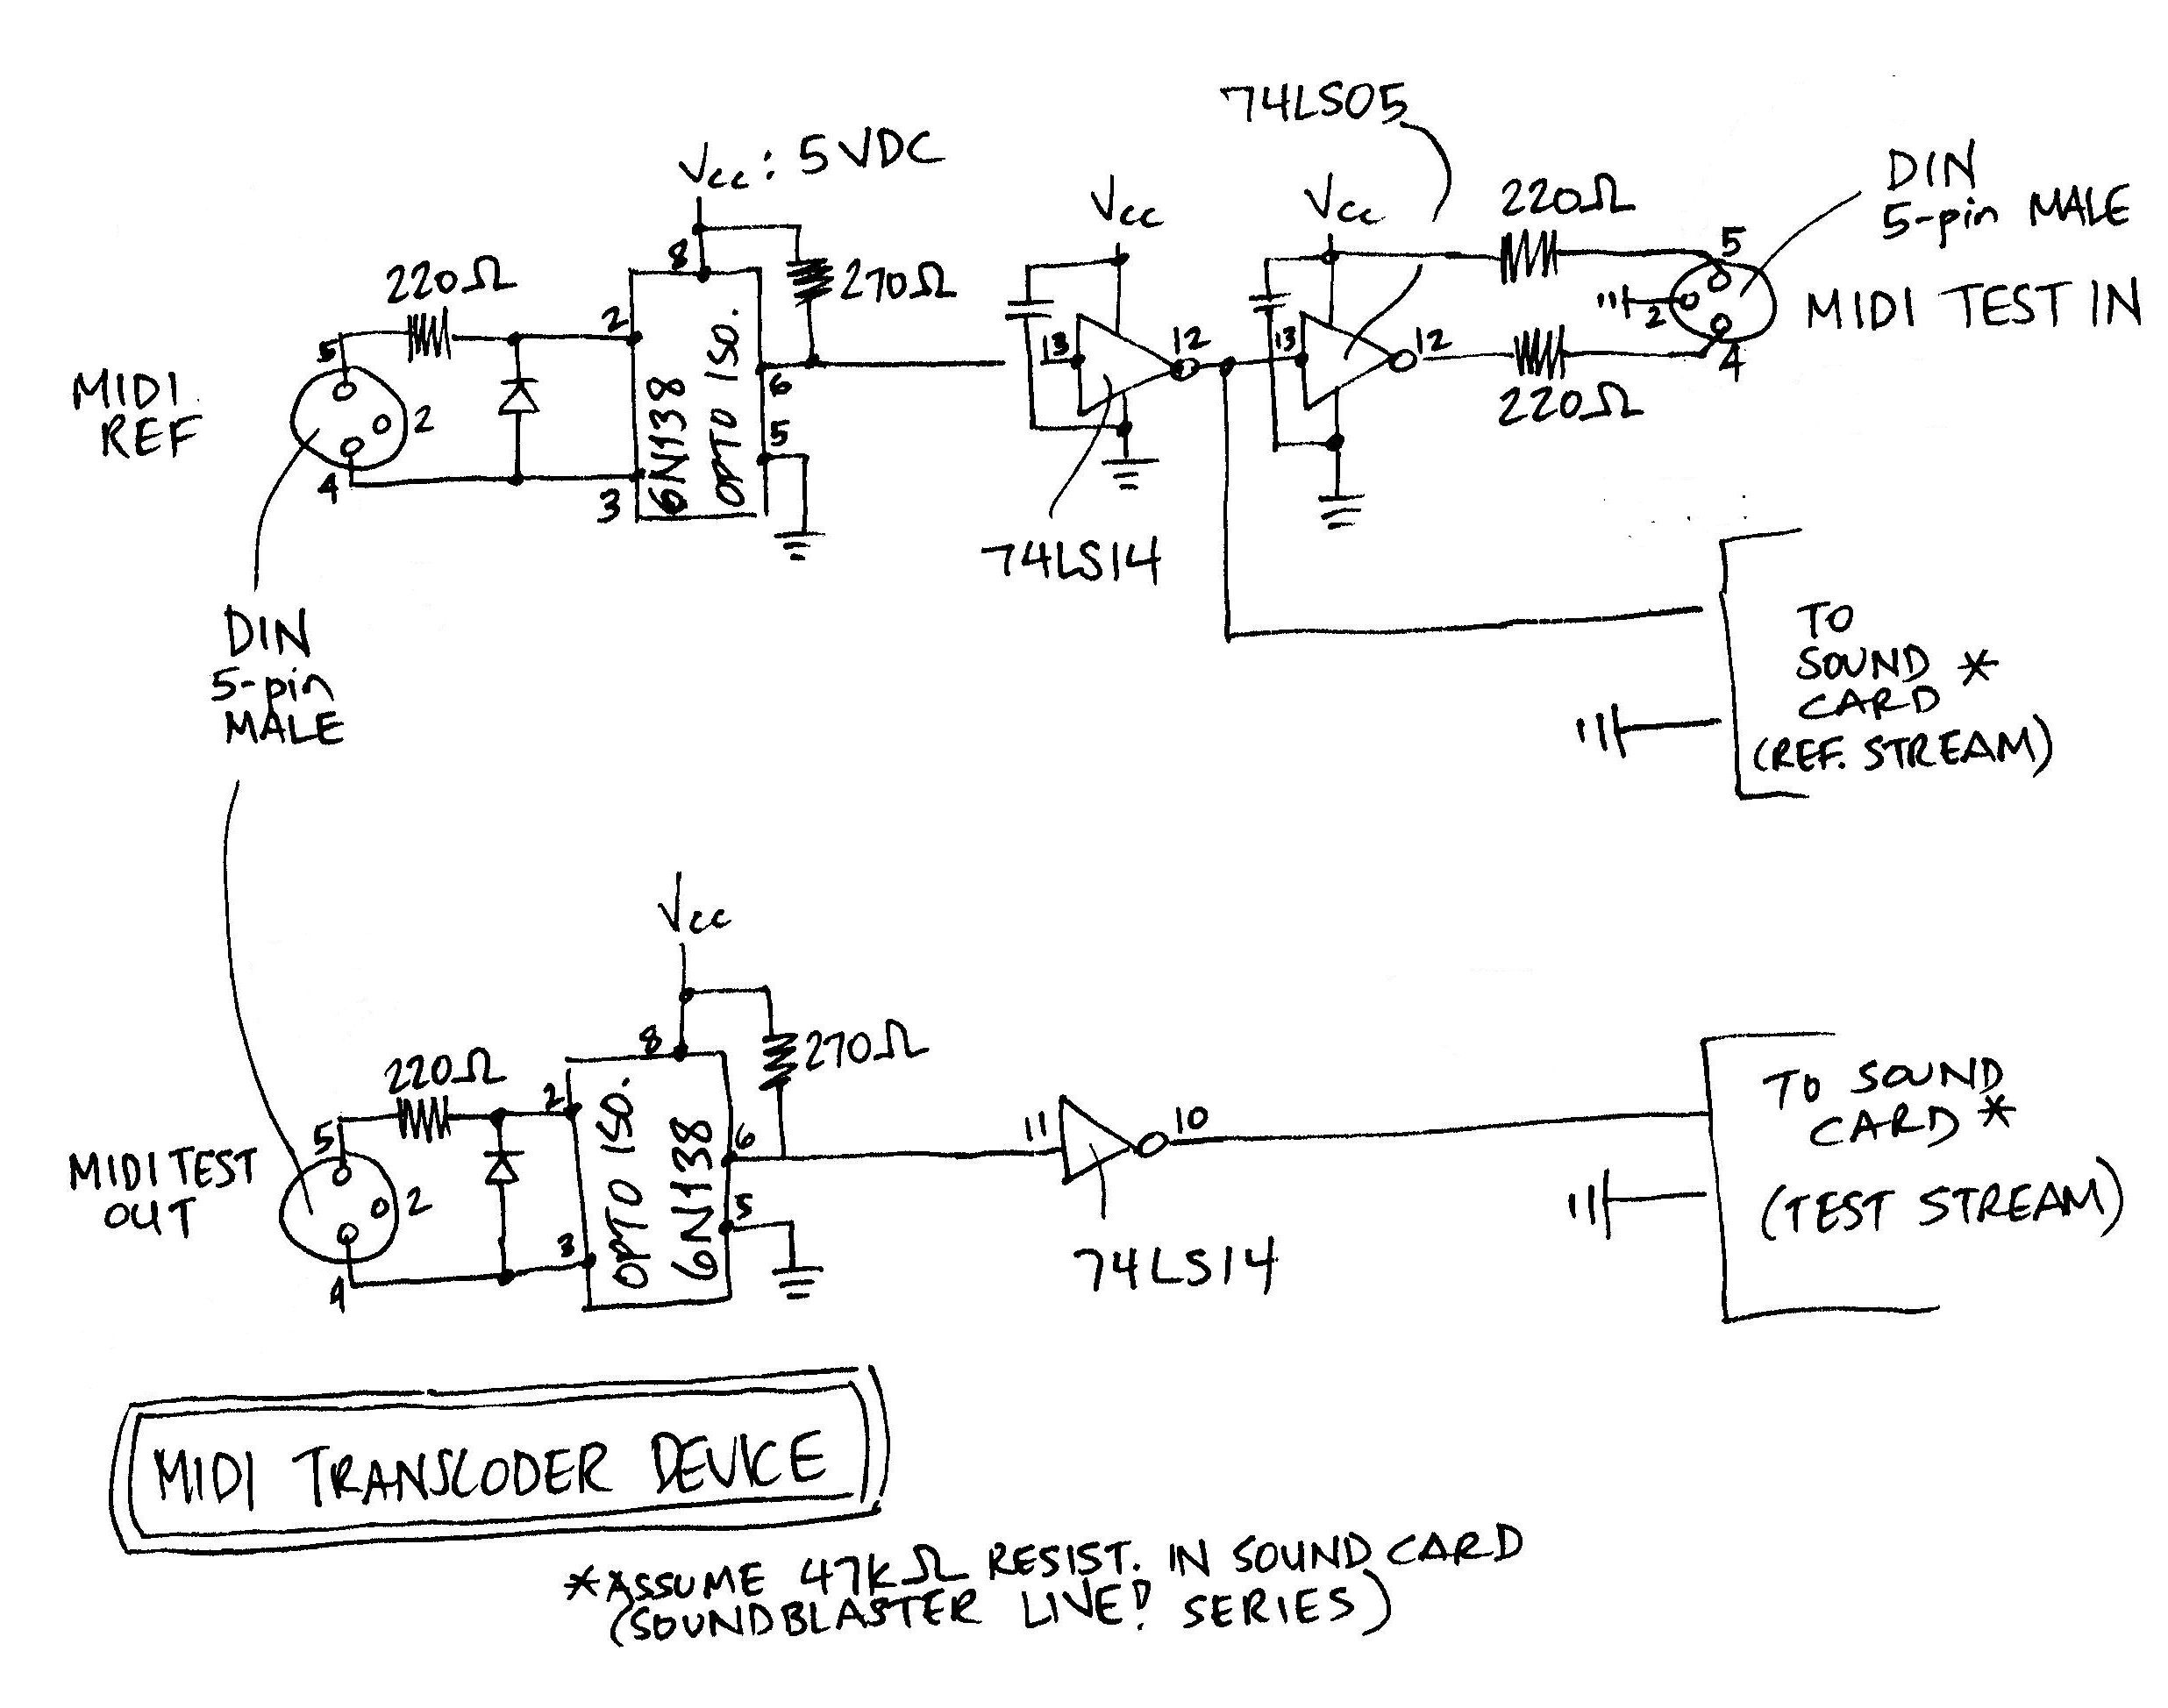 74LS05
Vcc: 5VDC
Vcc
Vcc
220Ω
DIN
5-pin MALE
8
270Ω
220Ω
2
5
2
4
MIDI TEST IN
13
12
13
12
220Ω
5
MIDI
REF
2
4
3
6N138
OPTO ISO.
6
5
74LS14
DIN
5-pin
MALE
TO
SOUND *
CARD
(REF. STREAM)
Vcc
8
270Ω
220Ω
2
5
MIDI TEST
OUT
2
4
3
OPTO ISO.
6N138
6
5
11
10
74LS14
TO SOUND
CARD *
(TEST STREAM)
MIDI TRANSCODER DEVICE
*ASSUME 47KΩ RESIST. IN SOUND CARD
(SOUNDBLASTER LIVE! SERIES)